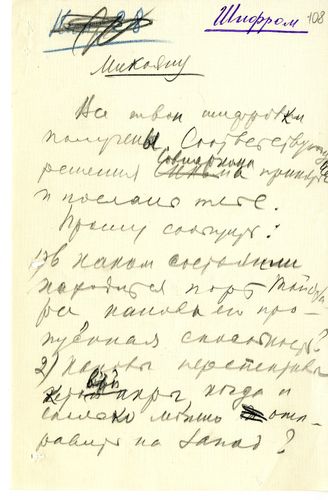 Шифром 108
Микояну
Все твои шифровки
получены. Соответствующие
решения Совнаркома приняты
и посланы тебе.
Прошу сообщить:
1) В каком состоянии
находится порт
какова его про-
пускная способность?
2) Каковы перспективы
когда и
сколько можно отп-
равить на запад?